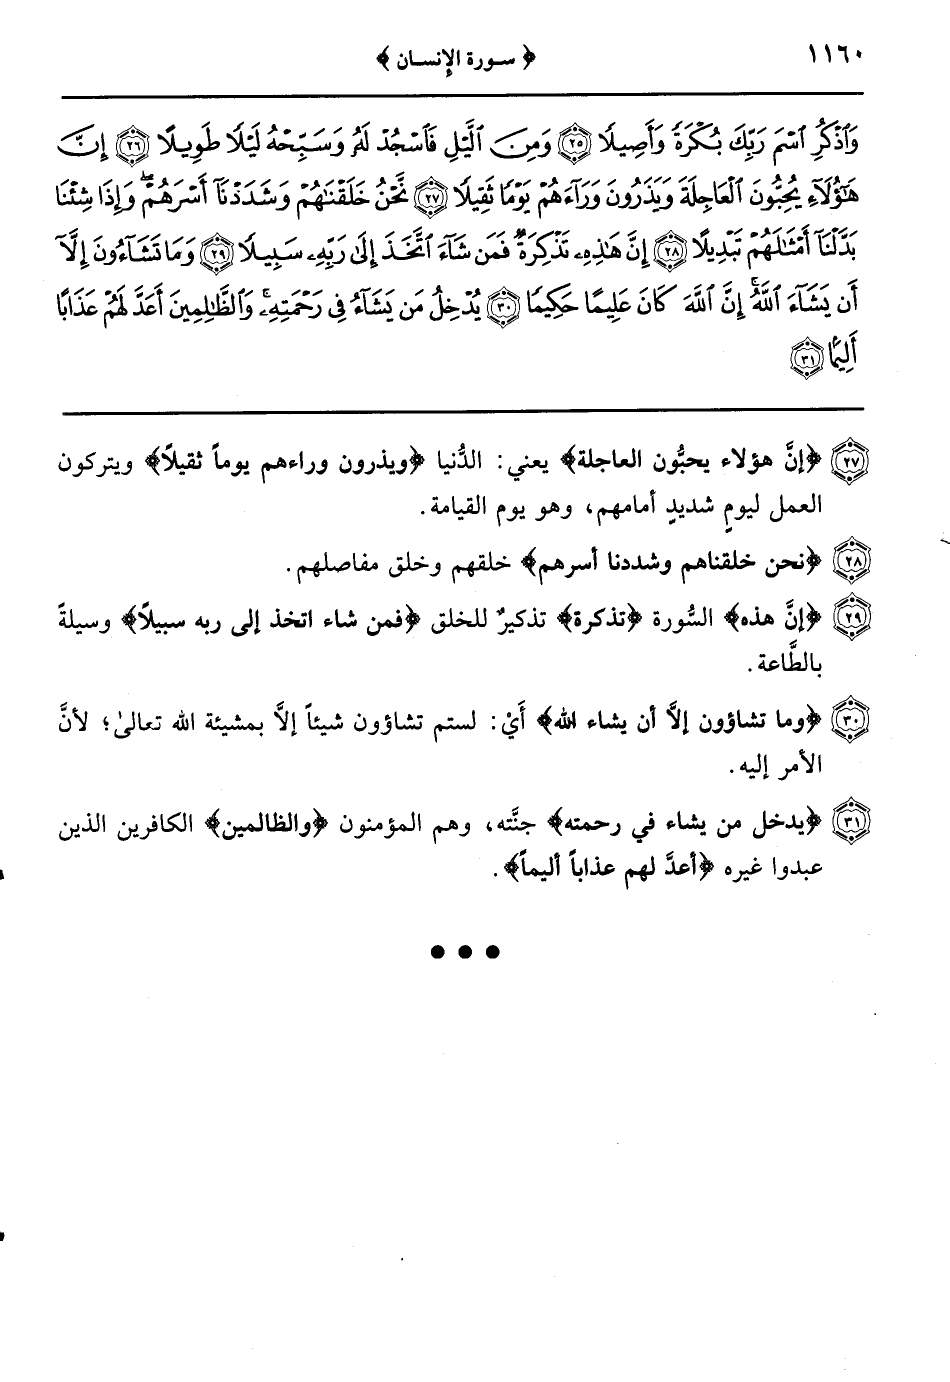 ١١٦٠ ﴿ سورة الإنسان ﴾
وَٱذْكُرِ ٱسْمَ رَبِّكَ بُكْرَةً وَأَصِيلًا ﴿٢٥﴾ وَمِنَ ٱلَّيْلِ فَٱسْجُدْ لَهُۥ وَسَبِّحْهُ لَيْلًا طَوِيلًا ﴿٢٦﴾ إِنَّ
هَٰٓؤُلَآءِ يُحِبُّونَ ٱلْعَاجِلَةَ وَيَذَرُونَ وَرَآءَهُمْ يَوْمًا ثَقِيلًا ﴿٢٧﴾ نَّحْنُ خَلَقْنَٰهُمْ وَشَدَدْنَآ أَسْرَهُمْ ۖ وَإِذَا شِئْنَا
بَدَّلْنَآ أَمْثَٰلَهُمْ تَبْدِيلًا ﴿٢٨﴾ إِنَّ هَٰذِهِۦ تَذْكِرَةٌ ۖ فَمَن شَآءَ ٱتَّخَذَ إِلَىٰ رَبِّهِۦ سَبِيلًا ﴿٢٩﴾ وَمَا تَشَآءُونَ إِلَّآ
أَن يَشَآءَ ٱللَّهُ ۚ إِنَّ ٱللَّهَ كَانَ عَلِيمًا حَكِيمًا ﴿٣٠﴾ يُدْخِلُ مَن يَشَآءُ فِى رَحْمَتِهِۦ ۚ وَٱلظَّٰلِمِينَ أَعَدَّ لَهُمْ عَذَابًا
أَلِيمًۢا ﴿٣١﴾
﴿٢٧﴾ ﴿إنَّ هؤلاء يحبُّون العاجلة﴾ يعني: الدُّنيا ﴿ويذرون وراءهم يوماً ثقيلاً﴾ ويتركون
العمل ليومٍ شديدٍ أمامهم، وهو يوم القيامة.
﴿٢٨﴾ ﴿نحن خلقناهم وشددنا أسرهم﴾ خلقهم وخلق مفاصلهم.
﴿٢٩﴾ ﴿إنَّ هذه﴾ السُّورة ﴿تذكرة﴾ تذكيرٌ للخلق ﴿فمن شاء اتخذ إلى ربه سبيلاً﴾ وسيلةً
بالطَّاعة.
﴿٣٠﴾ ﴿وما تشاؤون إلاَّ أن يشاء الله﴾ أَيْ: لستم تشاؤون شيئاً إلاَّ بمشيئة الله تعالىٰ؛ لأنَّ
الأمر إليه.
﴿٣١﴾ ﴿يدخل من يشاء في رحمته﴾ جنَّته، وهم المؤمنون ﴿والظالمين﴾ الكافرين الذين
عبدوا غيره ﴿أعدَّ لهم عذاباً أليماً﴾.